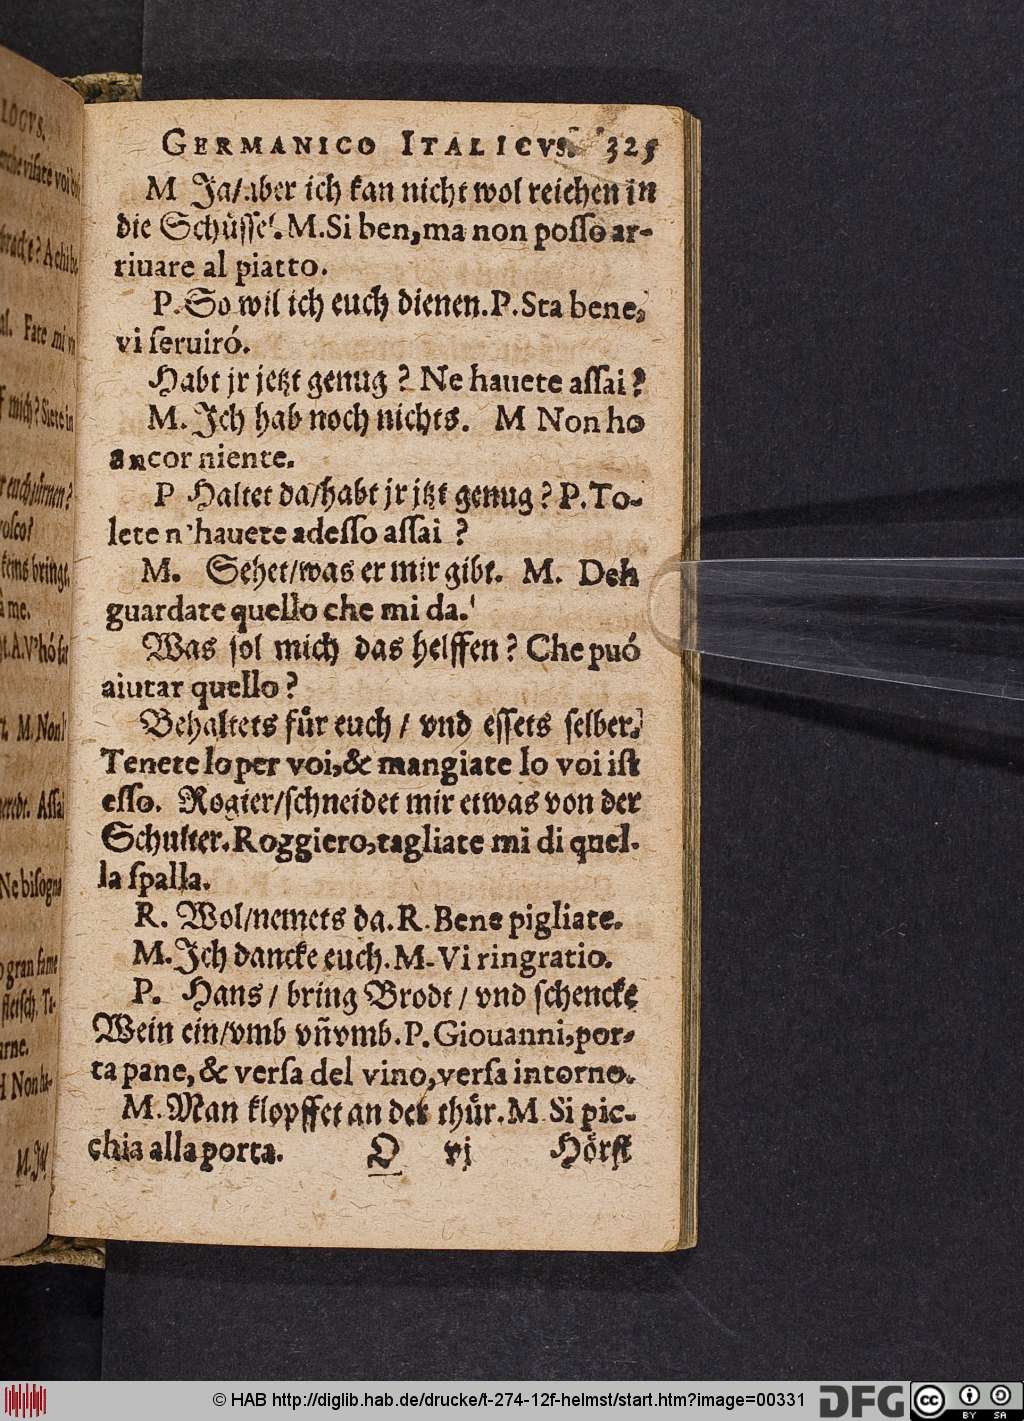 GERMANICO ITALICVS. 325
M Ja/aber ich kan nicht wol reichen in
die Schüssel. M. Si ben, ma non posso ar-
riuare al piatto.
P. So wil ich euch dienen. P. Sta bene,
vi seruiró.
Habt jr jetzt genug? Ne hauete assai?
M. Ich hab noch nichts. M Non ho
ancor niente.
P Haltet da/habt jr jtzt genug? P. To-
lete n'hauete adesso assai ?
M. Sehet/was er mir gibt. M. Deh
guardate quello che mi da.
Was sol mich das helffen? Che puó
aiutar quello?
Behaltets fůr euch / vnd essets selber.
Tenete lo per voi, & mangiate lo voi ist
esso. Rogier/schneidet mir etwas von der
Schulter. Roggiero, tagliate mi di quel-
la spalla.
R. Wol/nemets da. R. Bene pigliate.
M. Ich dancke euch. M. Vi ringratio.
P. Hans / bring Brodt / vnd schencke
Wein ein/vmb vñ vmb. P. Giouanni, por-
ta pane, & versa del vino, versa intorno.
M. Man klopffet an der thůr. M Si pic-
chia alla porta. Q vj Hörst
LOCVS.
perche visate voi
bracht? A chi
al. Fate mi vn
mich? Siete in
euch zürnen?
vosco?
keins bringt,
à me.
A. V'hó
M. Non
Assai
Ne bisogna
gran fame
fleisch. Ta-
arne.
Non ha-
© HAB http://diglib.hab.de/drucke/t-274-12f-helmst/start.htm?image=00331 DFG cc BY SA